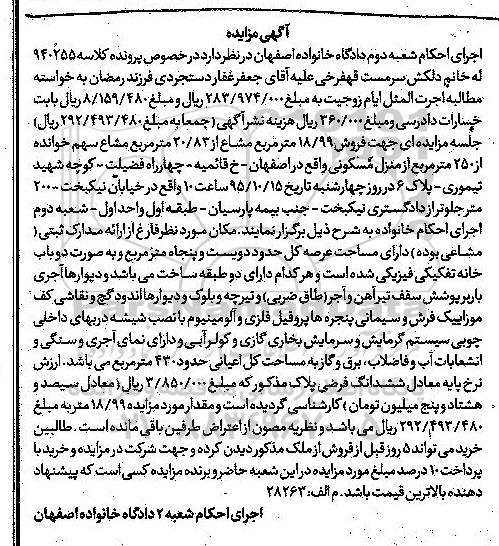 آگهی مزایده
اجرای احکام شعبه دوم دادگاه خانواده اصفهان در نظر دارد در خصوص پرونده کلاسه ۹۴۰۲۵۵
له خانم دلکش سرمست قهفرخی علیه آقای جعفر غفار دستجردی فرزند رمضان به خواسته
مطالبه اجرت المثل ایام زوجیت به مبلغ ۲۸۳/۹۷۴/۰۰۰ ریال و مبلغ ۸/۱۵۹/۴۸۰ ریال بابت
خسارات دادرسی ومبلغ ۳۶۰/۰۰۰ ریال هزینه نشر آگهی (جمعا به مبلغ ۲۹۲/۴۹۳/۴۸۰ ریال)
جلسه مزایده ای جهت فروش ۱۸/۹۹ مترمربع مشاع از ۲۰/۸۳ مترمربع مشاع سهم خوانده
از ۲۵۰ مترمربع از منزل مسکونی واقع در اصفهان - خ قائمیه - چهارراه فضیلت - کوچه شهید
تیموری - پلاک ۶ در روز چهارشنبه تاریخ ۹۵/۱۰/۱۵ ساعت ۱۰ واقع در خیابان نیکبخت - ۲۰۰
متر جلوتر از دادگستری نیکبخت - جنب بیمه پارسیان - طبقه اول واحد اول - شعبه دوم
اجرای احکام خانواده به شرح ذیل برگزار نمایند. مکان مورد نظر فارغ از ارائه مدارک ثبتی (
مشاعی بوده) دارای مساحت عرصه کل حدود دویست و پنجاه متر مربع و به صورت دو باب
خانه تفکیکی فیزیکی شده است و هر کدام دارای دو طبقه ساخت می باشد و دیوارها آجری
باربر پوشش سقف تیرآهن و آجر (طاق ضربی) و تیرچه و بلوک و دیوارها اندود گچ و نقاشی کف
موزاییک فرش و سیمانی پنجره ها پروفیل فلزی و آلومینیوم با نصب شیشه دربهای داخلی
چوبی سیستم گرمایش و سرمایش بخاری گازی و کولر آبی و دارای نمای آجری و سنگی و
انشعابات آب و فاضلاب، برق و گاز به مساحت کل اعیانی حدود ۴۳۰ مترمربع می باشد. ارزش
نرخ پایه معادل ششدانگ فرضی پلاک مذکور که مبلغ ۳/۸۵۰/۰۰۰ ریال (معادل سیصد و
هشتاد و پنج میلیون تومان) کارشناسی گردیده است و مقدار مورد مزایده ۱۸/۹۹ متر به مبلغ
۲۹۲/۴۹۳/۴۸۰ ریال می باشد و نظریه مصون از اعتراض طرفین باقی مانده است. طالبین
خرید می تواند ۵ روز قبل از فروش از ملک مذکور دیدن کرده و جهت شرکت در مزایده و خرید با
پرداخت ۱۰ درصد مبلغ مورد مزایده در این شعبه حاضر و برنده مزایده کسی است که پیشنهاد
دهنده بالاترین قیمت باشد. م الف: ۲۸۲۶۳
اجرای احکام شعبه ۲ دادگاه خانواده اصفهان